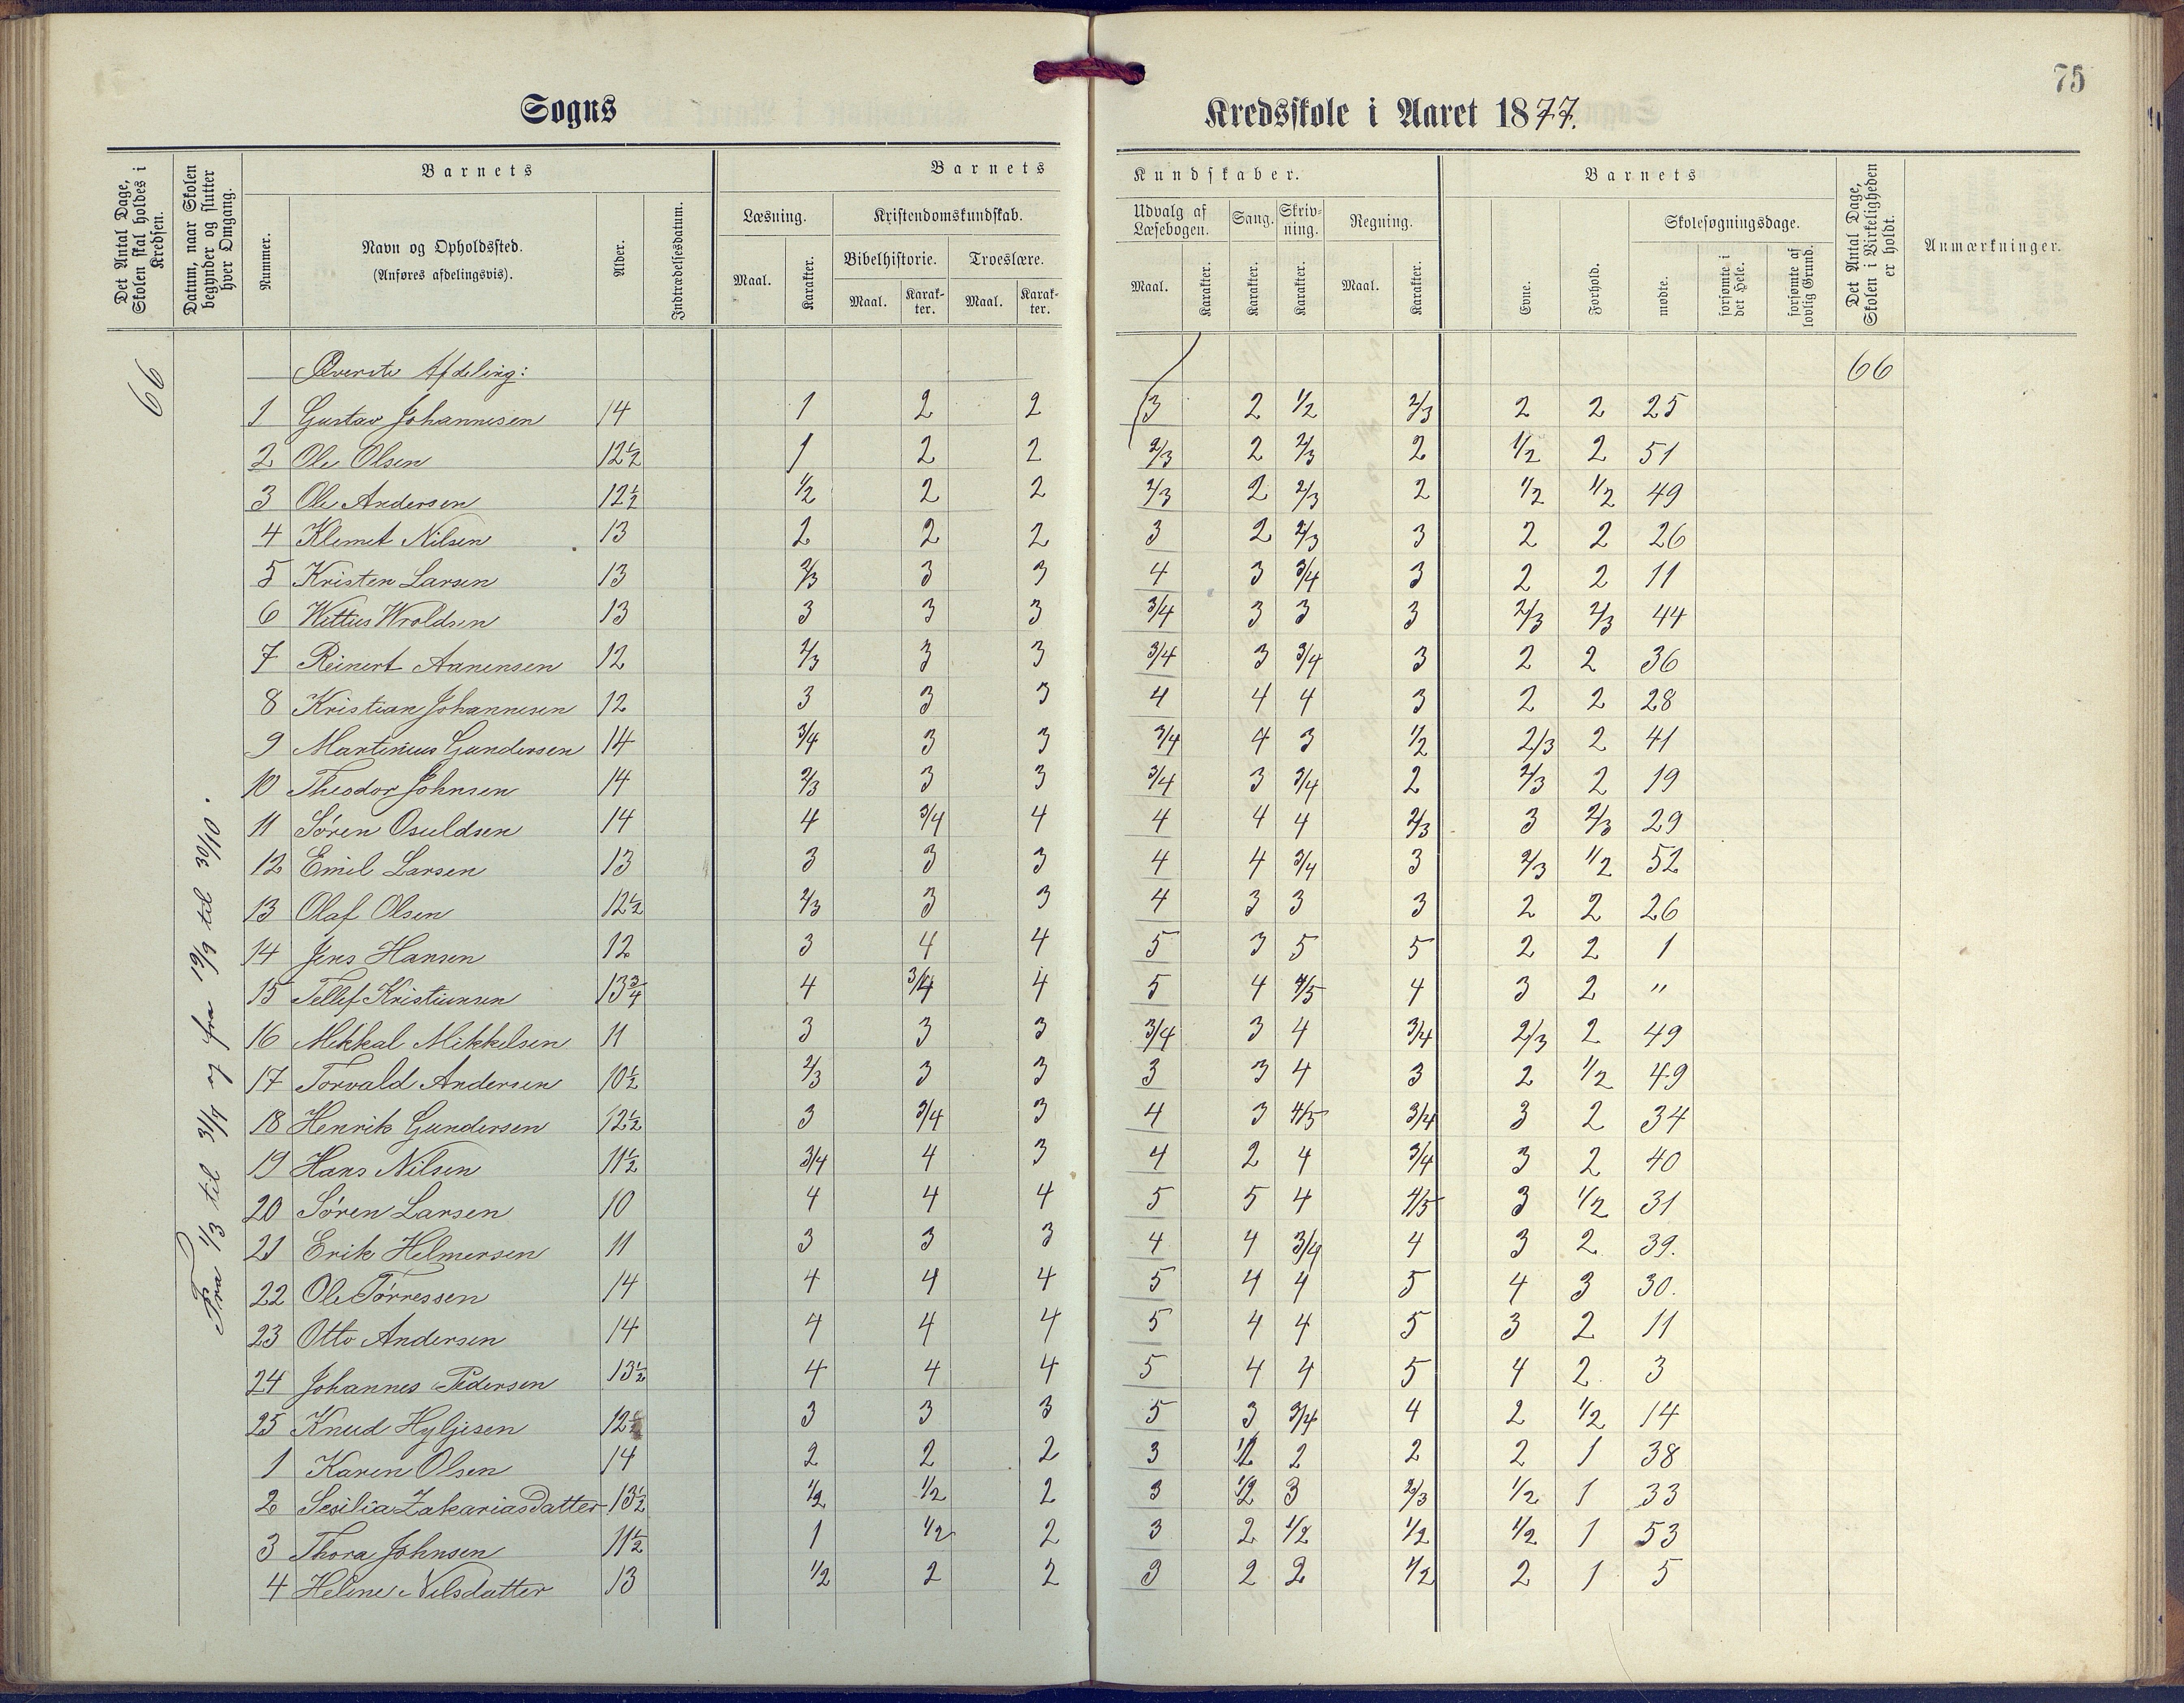 75
Sogns Kredsskole i Aaret 1877.
Det Antal Dage, Skolen skal holdes i Kredsen.
Datum, naar Skolen begynder og slutter hver Omgang.
Barnets
Nummer.
Navn og Opholdssted.
(Anføres afdelingsvis).
Alder.
Indtrædelsesdatum.
Barnets Kundskaber.
Læsning.
Maal.
Karakter.
Kristendomskundskab.
Bibelhistorie.
Maal.
Karakter.
Troeslære.
Maal.
Karakter.
Udvalg af Læsebogen.
Maal.
Karakter.
Sang.
Karakter.
Skrivning.
Karakter.
Regning.
Maal.
Karakter.
Barnets
Evne.
Forhold.
Skolesøgningsdage.
mødte.
forsømte i det Hele.
forsømte af lovlig Grund.
Det Antal Dage, Skolen i Virkeligheden er holdt.
Anmærkninger.
66
Fra 1/3 til 31/7 og fra 19/9 til 30/10.
Øverste Afdeling: 66
1 Gustav Johannesen 14 1 2 2 3 2 1/2 2/3 2 2 25
2 Ole Olsen 12½ 1 2 2 2/3 2 2/3 2 1/2 2 51
3 Ole Andersen 12½ 1/2 2 2 2/3 2 2/3 2 1/2 1/2 49
4 Klemet Nilsen 13 2 2 2 3 2 2/3 3 2 2 26
5 Kristen Larsen 13 2/3 3 3 4 3 3/4 3 2 2 11
6 Wittius Wroldsen 13 3 3 3 3/4 3 3 3 2/3 2/3 44
7 Reinert Aanensen 12 2/3 3 3 3/4 3 3/4 3 2 2 36
8 Kristian Johannesen 12 3 3 3 4 4 4 3 2 2 28
9 Martinius Gundersen 14 3/4 3 3 3/4 4 3 1/2 2/3 2 41
10 Theodor Johnsen 14 2/3 3 3 3/4 3 3/4 2 2/3 2 19
11 Sören Osuldsen 14 4 3/4 4 4 4 4 2/3 3 2/3 29
12 Emil Larsen 13 3 3 3 4 4 3/4 3 2/3 1/2 52
13 Olaf Olsen 12½ 2/3 3 3 4 3 3 3 2 2 26
14 Jens Hansen 12 3 4 4 5 3 5 5 2 2 1
15 Tellef Kristiansen 13¾ 4 3/4 4 5 4 4/5 4 3 2 "
16 Mikkal Mikkelsen 11 3 3 3 3/4 3 4 3/4 2/3 2 49
17 Torvald Andersen 10½ 2/3 3 3 3 3 4 3 2 1/2 49
18 Henrik Gundersen 12½ 3 3/4 3 4 3 4/5 3/4 3 2 34
19 Hans Nilsen 11½ 3/4 4 3 4 2 4 3/4 3 2 40
20 Sören Larsen 10 4 4 4 5 5 4 4/5 3 1/2 31
21 Erik Helmersen 11 3 3 3 4 4 3/4 4 3 2 39.
22 Ole Törressen 14 4 4 4 5 4 4 5 4 3 30.
23 Otto Andersen 14 4 4 4 5 4 4 5 3 2 11
24 Johannes Pedersen 13½ 4 4 4 5 4 4 5 4 2 3
25 Knud Hyljesen 12½ 3 3 3 5 3 3/4 4 2 1/2 14
1 Karen Olsen 14 2 2 2 3 1/2 2 2 2 1 38
2 Sesilia Zakariasdatter 13½ 1/2 1/2 2 3 1/2 3 2/3 1/2 1 33
3 Thora Johnsen 11½ 1 1/2 2 3 2 1/2 1/2 1/2 1 53
4 Heline Nilsdatter 13 1/2 2 2 3 2 2 1/2 2 1 5